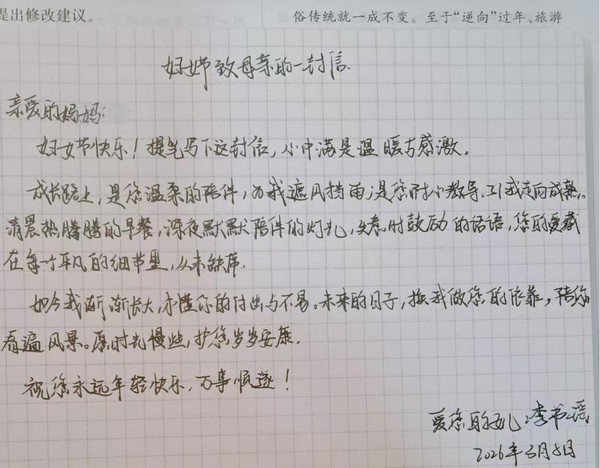 是出修改建议。
俗传统就一成不变。至于“逆向”过年、旅游
妇女节致母亲的一封信
亲爱的妈妈:
妇女节快乐！提笔写下这封信，心中满是温暖与感激。
成长路上，是您温柔的陪伴，为我遮风挡雨；是您耐心教导，引我走向成熟。
清晨热腾腾的早餐，深夜默默陪伴的灯光，失意时鼓励的话语，您的爱藏
在每个平凡的细节里，从未缺席。
如今我渐渐长大，亦懂您的付出与不易。未来的日子，换我做您的依靠，陪您
看遍风景。愿时光慢些，护您岁岁安康。
祝您永远年轻快乐，万事顺遂！
爱您的女儿：李书瑶
2026年3月8日